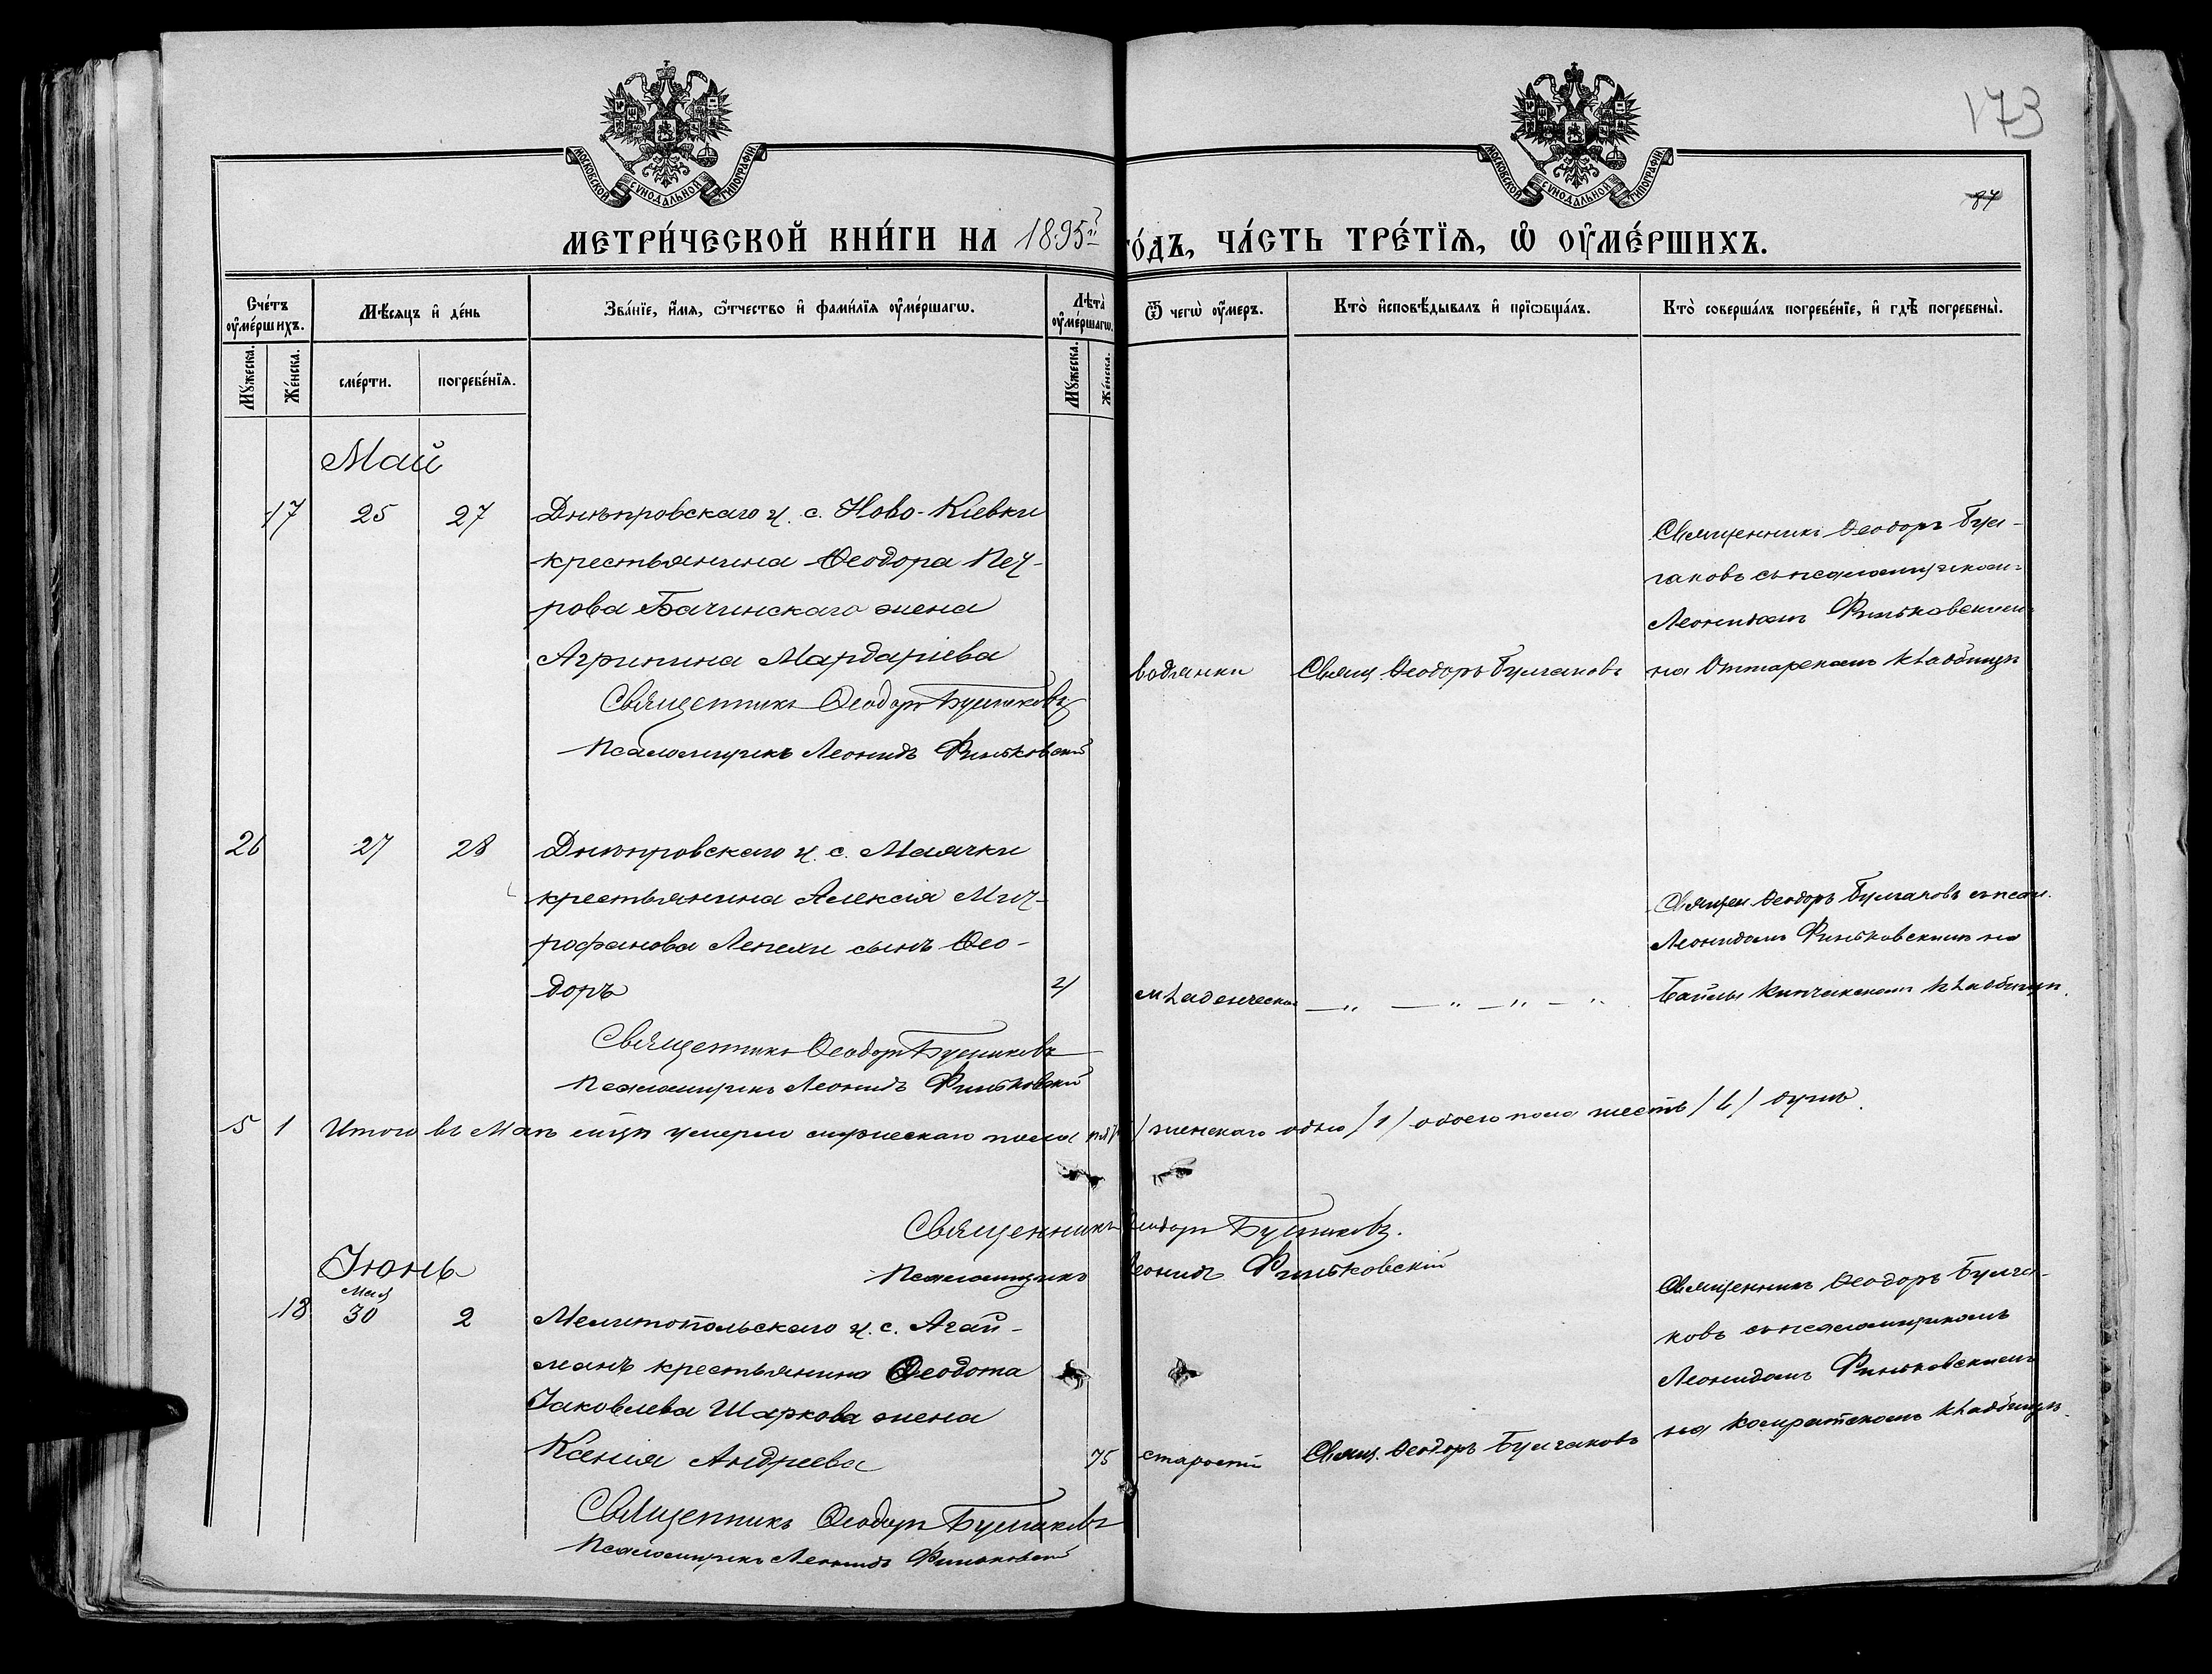 173
87
МОСКОВСКОЙ СУНОДАЛЬНОЙ ТИПОГРАФІИ
МОСКОВСКОЙ СУНОДАЛЬНОЙ ТИПОГРАФІИ
МЕТРИ́ЧЕСКОЙ КНИ́ГИ НА 1895й го́дъ, ЧА́СТЬ ТРЕ́ТЇѦ, Ѽ ОУ҆МЕ́РШИХЪ.
Сче́тъ оу҆ме́ршихъ.
Мѣ́сяцъ и҆ де́нь
Зва́нїе, и҆́мѧ, ѻ҆́тчество и҆ фами́лїѧ оу҆ме́ршагѡ.
Лѣта̀ оу҆ме́ршагѡ.
Ѿ чегѡ̀ оу҆́меръ.
Кто̀ и҆сповѣ́дывалъ и҆ прїѡбща́лъ.
Кто̀ соверша́лъ погребе́нїе, и҆ гдѣ̀ погребены̀.
Му́жеска.
Же́нска.
сме́рти.
погребе́нїѧ.
Му́жеска.
Же́нска.
Май
17 25 27 Днѣпровскаго у. с. Ново-Кіевки
крестьянина Ѳеодора Пет-
рова Бачинскаго жена
Агрипина Мардаріева
Священникъ Ѳеодоръ Булгаковъ
Псаломщикъ Леонидъ Финьковскій
водянки
Свящ. Ѳеодоръ Булгаковъ
Священникъ Ѳеодоръ Бул-
гаковъ съ псаломщикомъ
Леонидомъ Финьковскимъ
на кладбищѣ
26 27 28 Днѣпровскаго у. с. Маячки
крестьянина Алексія Мит-
рофанова Лепехи сынъ Ѳео-
доръ
Священникъ Ѳеодоръ Булгаковъ
Псаломщикъ Леонидъ Финьковскій
младенческой — „ — „ — „ — „
Священ. Ѳеодоръ Булгаковъ съ псал.
Леонидомъ Финьковскимъ на
кладбищѣ.
5 1 Итого въ Маѣ мцѣ умерло мужескаго пола / женскаго одно /1/ обоего пола шесть /6/ душъ.
Священникъ Ѳеодоръ Булгаковъ.
Псаломщикъ Леонидъ Финьковскій
Іюнь
Мая
18 30 2 Мелитопольскаго у. с. Агай-
манъ крестьянина Ѳеодота
Іаковлева Шаркова жена
Ксенія Андреева
Священникъ Ѳеодоръ Булгаковъ
Псаломщикъ Леонидъ Финьковскій
75 старости
Свящ. Ѳеодоръ Булгаковъ
Священникъ Ѳеодоръ Булга-
ковъ съ псаломщикомъ
Леонидомъ Финьковскимъ
на кладбищѣ.